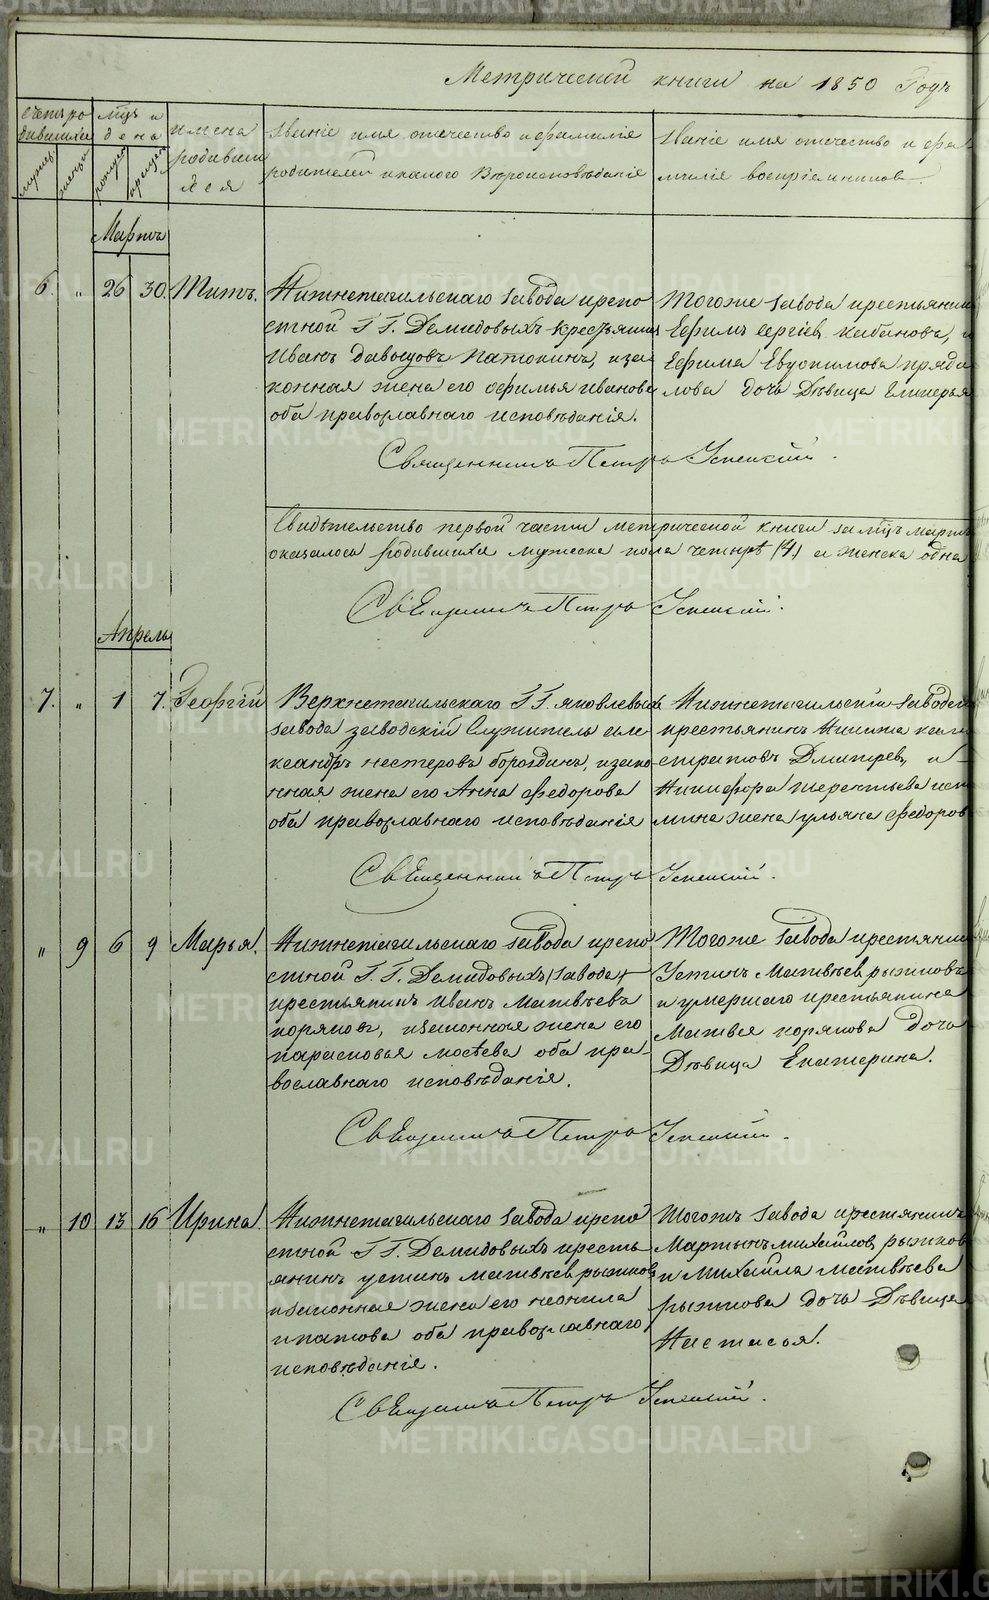 Метрической книги на 1850 Годъ
Счетъ ро
дившихся
мѣцъ и
дена
имена
родивши
яся
Званіе имя отечество и фамиліе
родителей и какого Вѣроисповѣданія
Званіе имя отечество и фа
миліе воспріемниковъ
Марта
6. „ 26 30. Титъ.
Нижнетагильскаго завода крепо
стной Г.Г. Демидовыхъ крестьянинъ
Иванъ давыдовъ Патокинъ, и за
конная жена его Офимья иванова
оба православнаго исповѣданія.
Тогоже завода крестьянинъ
Ефимъ сергіев кабановъ, и
Ефима Евдокимова пряди
лова дочь Дѣвица Гликерья
Священникъ Петръ Успенскій.
Свидѣтельство первой части метрической книги за мѣцъ мартъ
оказалося родившихся мужеска пола четыре (4) а женска одна
Священникъ Петръ Успенскій.
Апрель
7. „ 1 7. Георгій
Верхнетагильскаго Г.Г. яковлевыхъ
завода заводскій служитель але
ксандръ нестеровъ бороздинъ, и зако
нная жена его Анна федорова
оба православнаго исповѣданія
Нижнетагильскій заводскій
крестьянинъ Никита кали
стратовъ Дмитрев, и
Никифора терентьева
жена ульяна федоров
Священникъ Петръ Успенскій.
„ 9 6 9 Марья.
Нижнетагильскаго завода крепо
стной Г.Г. Демидовыхъ (завода)
крестьянинъ Иванъ Матвѣевъ
коряковъ, и законная жена его
парасковья мосѣева оба пра-
вославнаго исповѣданія.
Тогоже завода крестянинъ
Устинъ Матвѣев рыжковъ
и умершаго крестьянина
Матвея корякова дочь
Дѣвица Екатерина.
Священникъ Петръ Успенскій.
„ 10 13 16 Ирина.
Нижнетагильскаго завода крепо
стной Г.Г. Демидовыхъ кресть
янинъ устинъ матвѣев рыжковъ
и законная жена его неонила
ипатова оба православнаго
исповѣданія.
Тогожъ завода крестянинъ
Мартынъ михайлов, рыжков
и Михайла матвѣева
рыжкова дочь Дѣвица
Настасья.
Священникъ Петръ Успенскій.
METRIKI.GASO-URAL.RU